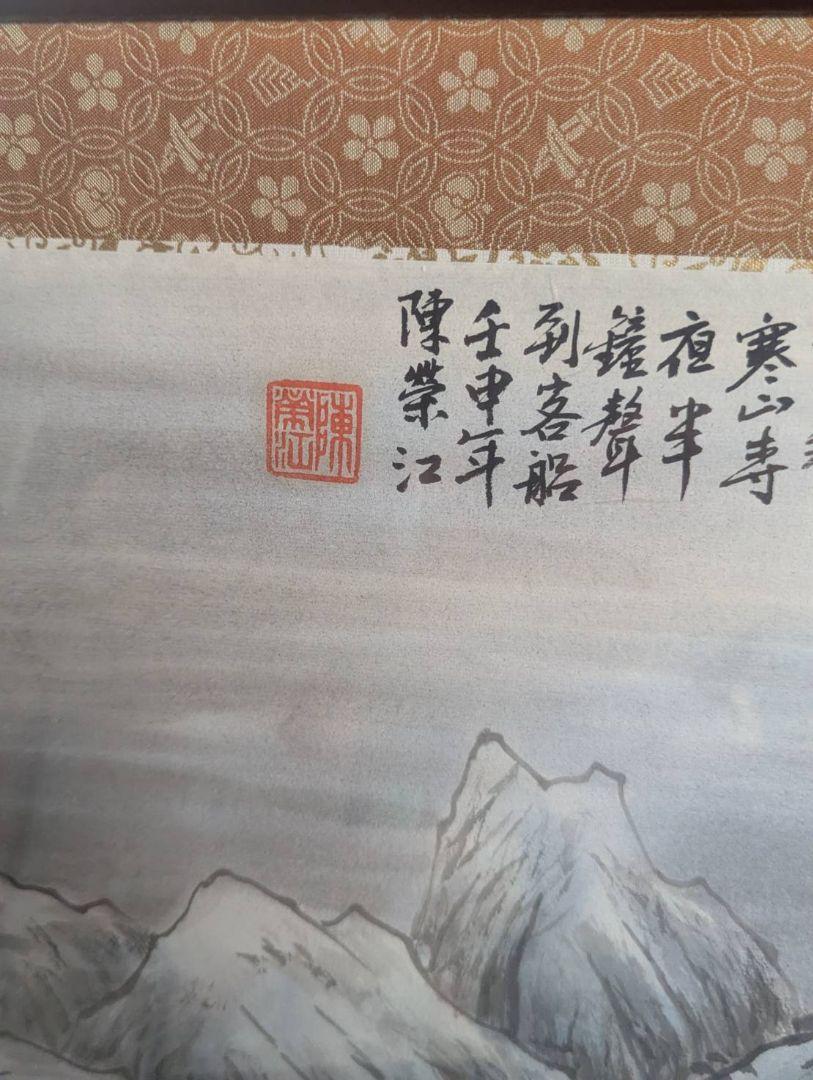 寒山寺
夜半
鐘聲
到客船
壬申年
陳榮江
陳榮江